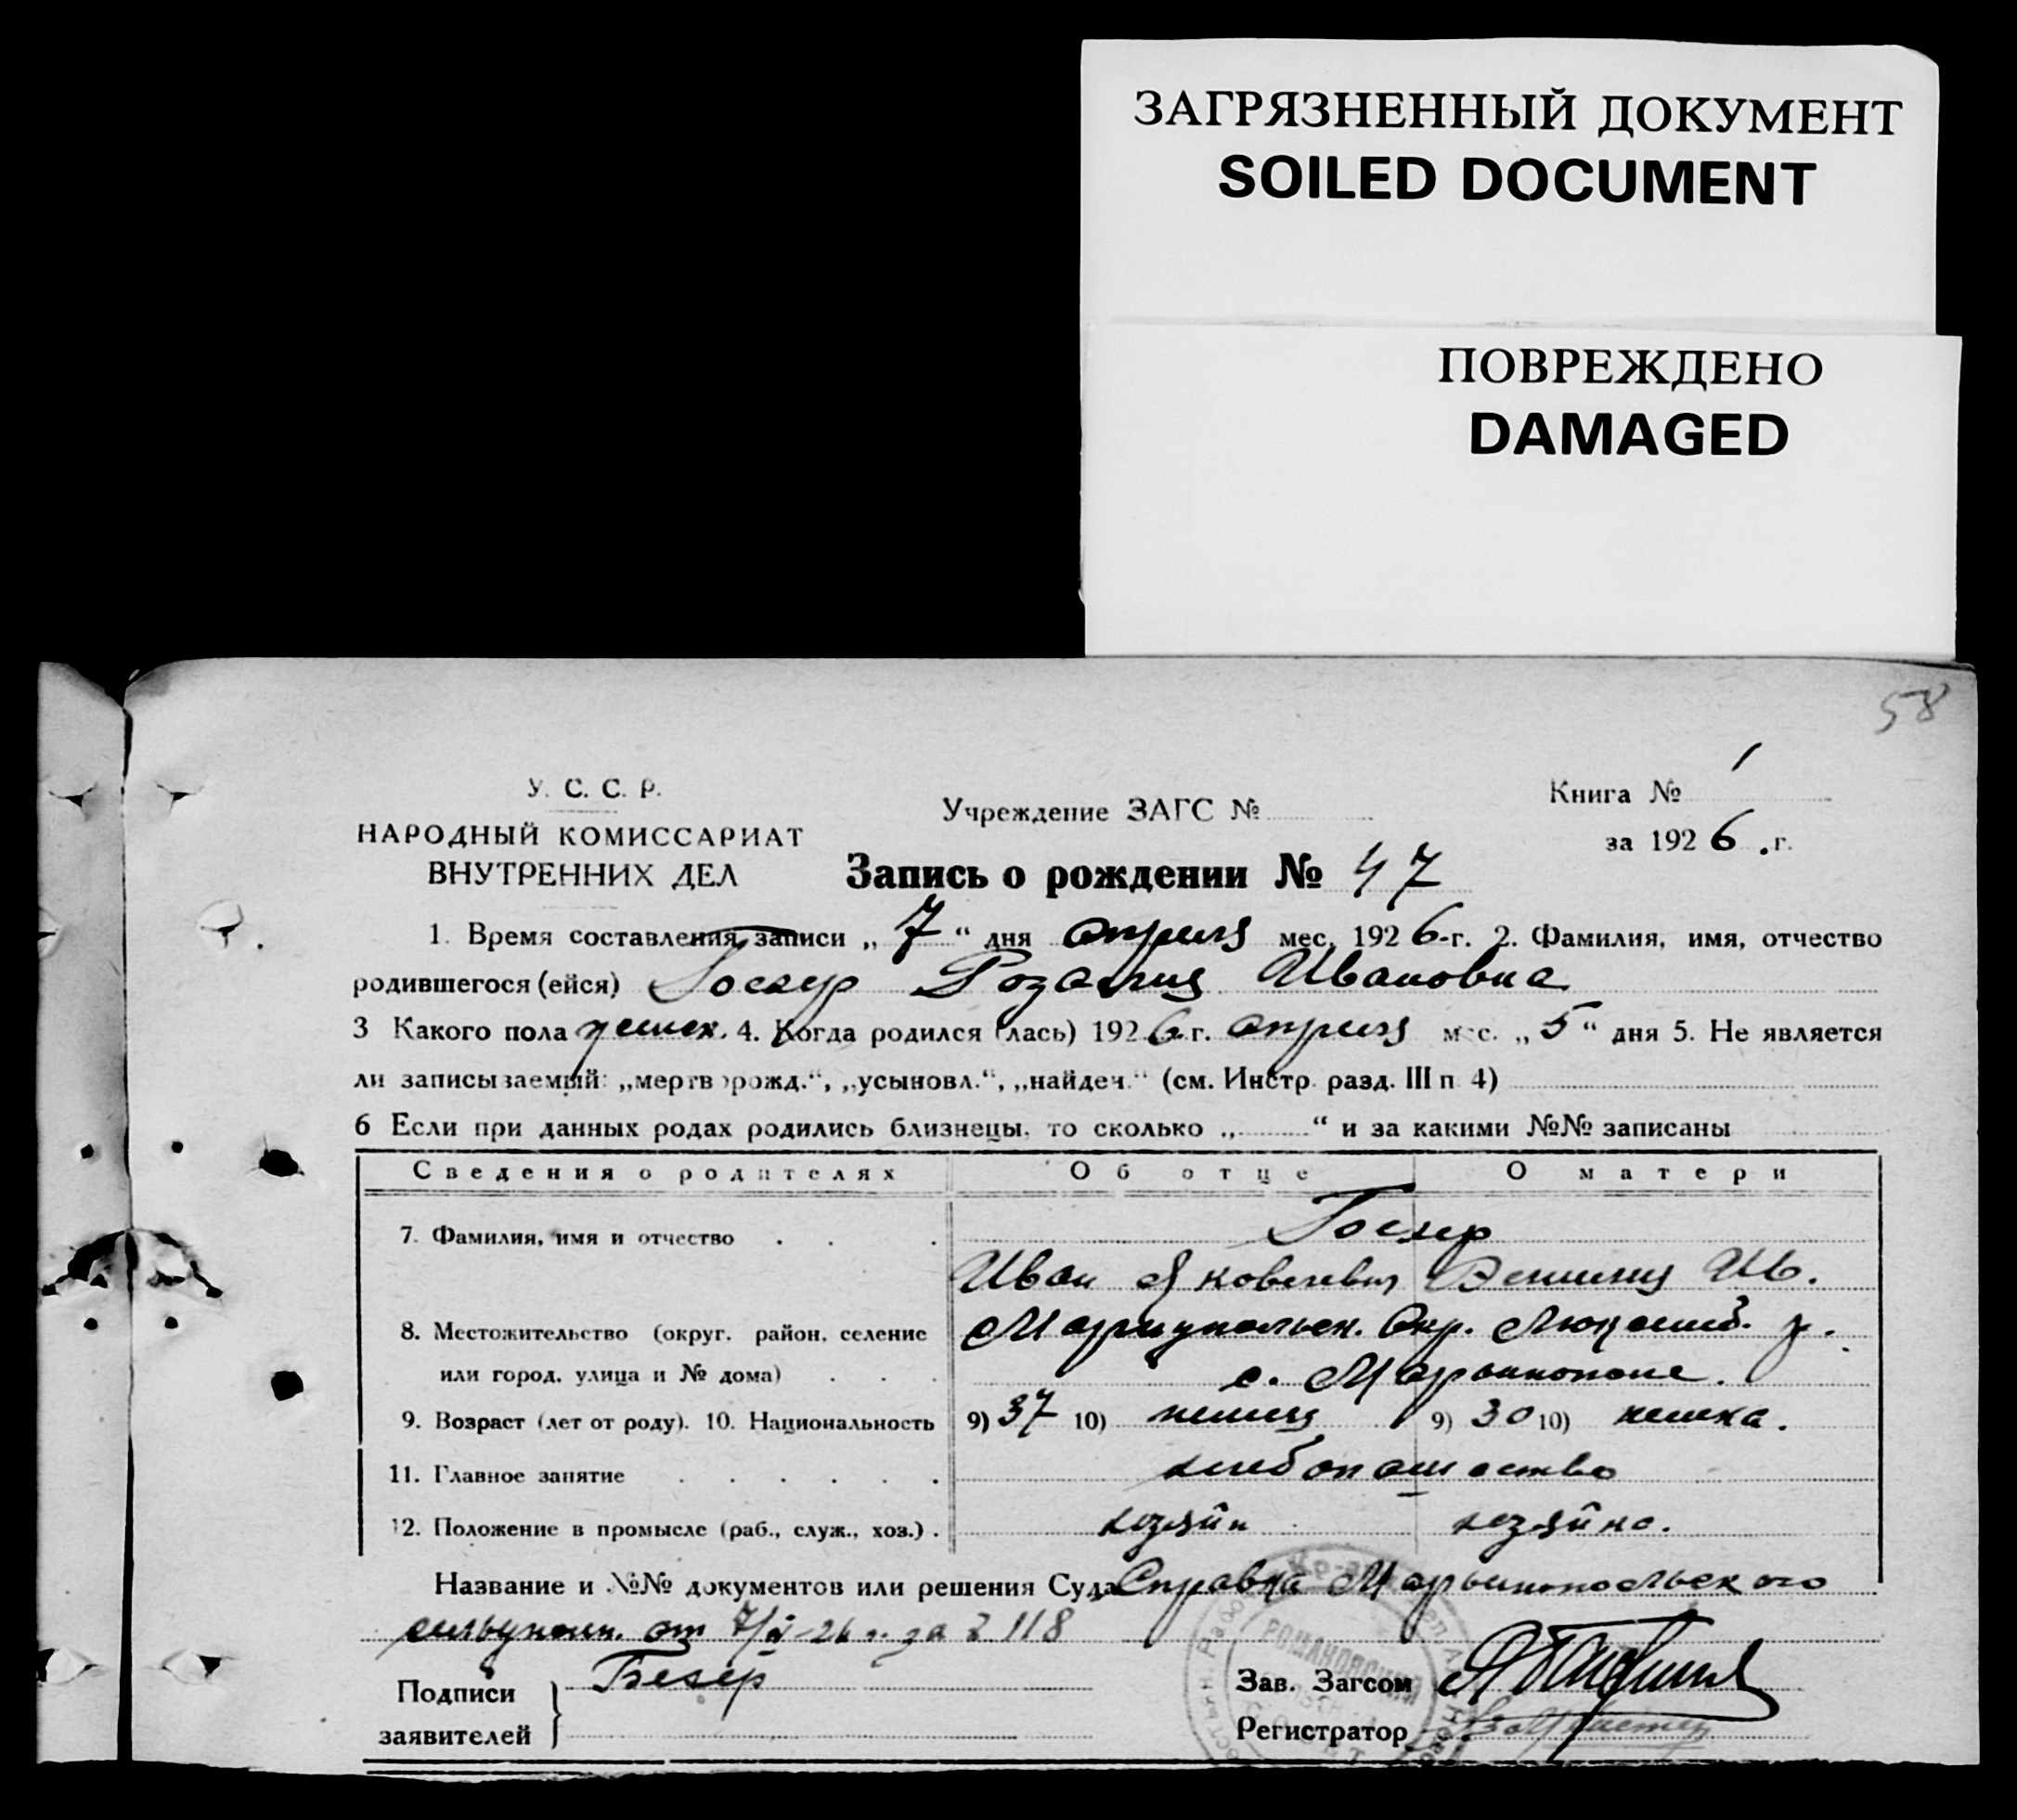 ЗАГРЯЗНЕННЫЙ ДОКУМЕНТ
SOILED DOCUMENT
ПОВРЕЖДЕНО
DAMAGED
58
У. С. С. Р.
НАРОДНЫЙ КОМИССАРИАТ
ВНУТРЕННИХ ДЕЛ
Учреждение ЗАГС №
Книга № 1
за 1926 .г.
Запись о рождении № 47
1. Время составления записи „ 7 “ дня апреля мес. 1926-г. 2. Фамилия, имя, отчество
родившегося (ейся) Розалия Ивановна
3 Какого пола женск. 4. Когда родился (лась) 1926 г. апреля мес. „ 5 “ дня 5. Не является
ли записываемый: „мертворожд.“, „усыновл.“, „найден.“ (см. Инстр. разд. III п 4)
6 Если при данных родах родились близнецы, то сколько „ “ и за какими №№ записаны
Сведения о родителях Об отце О матери
7. Фамилия, имя и отчество
Иван Яковлевич Ив.
8. Местожительство (округ, район, селение Мариупольск. Окр. Люксемб. р.
или город, улица и № дома) с. Марьинополе.
9. Возраст (лет от роду). 10. Национальность 9) 37 10) немец 9) 30 10) немка.
11. Главное занятие хлебопашество
12. Положение в промысле (раб., служ., хоз.) . хозяин хозяйка.
Название и №№ документов или решения Суда Справка Марьинопольского
от 26 г. за № 118
Подписи
заявителей
Зав. Загсом
Регистратор